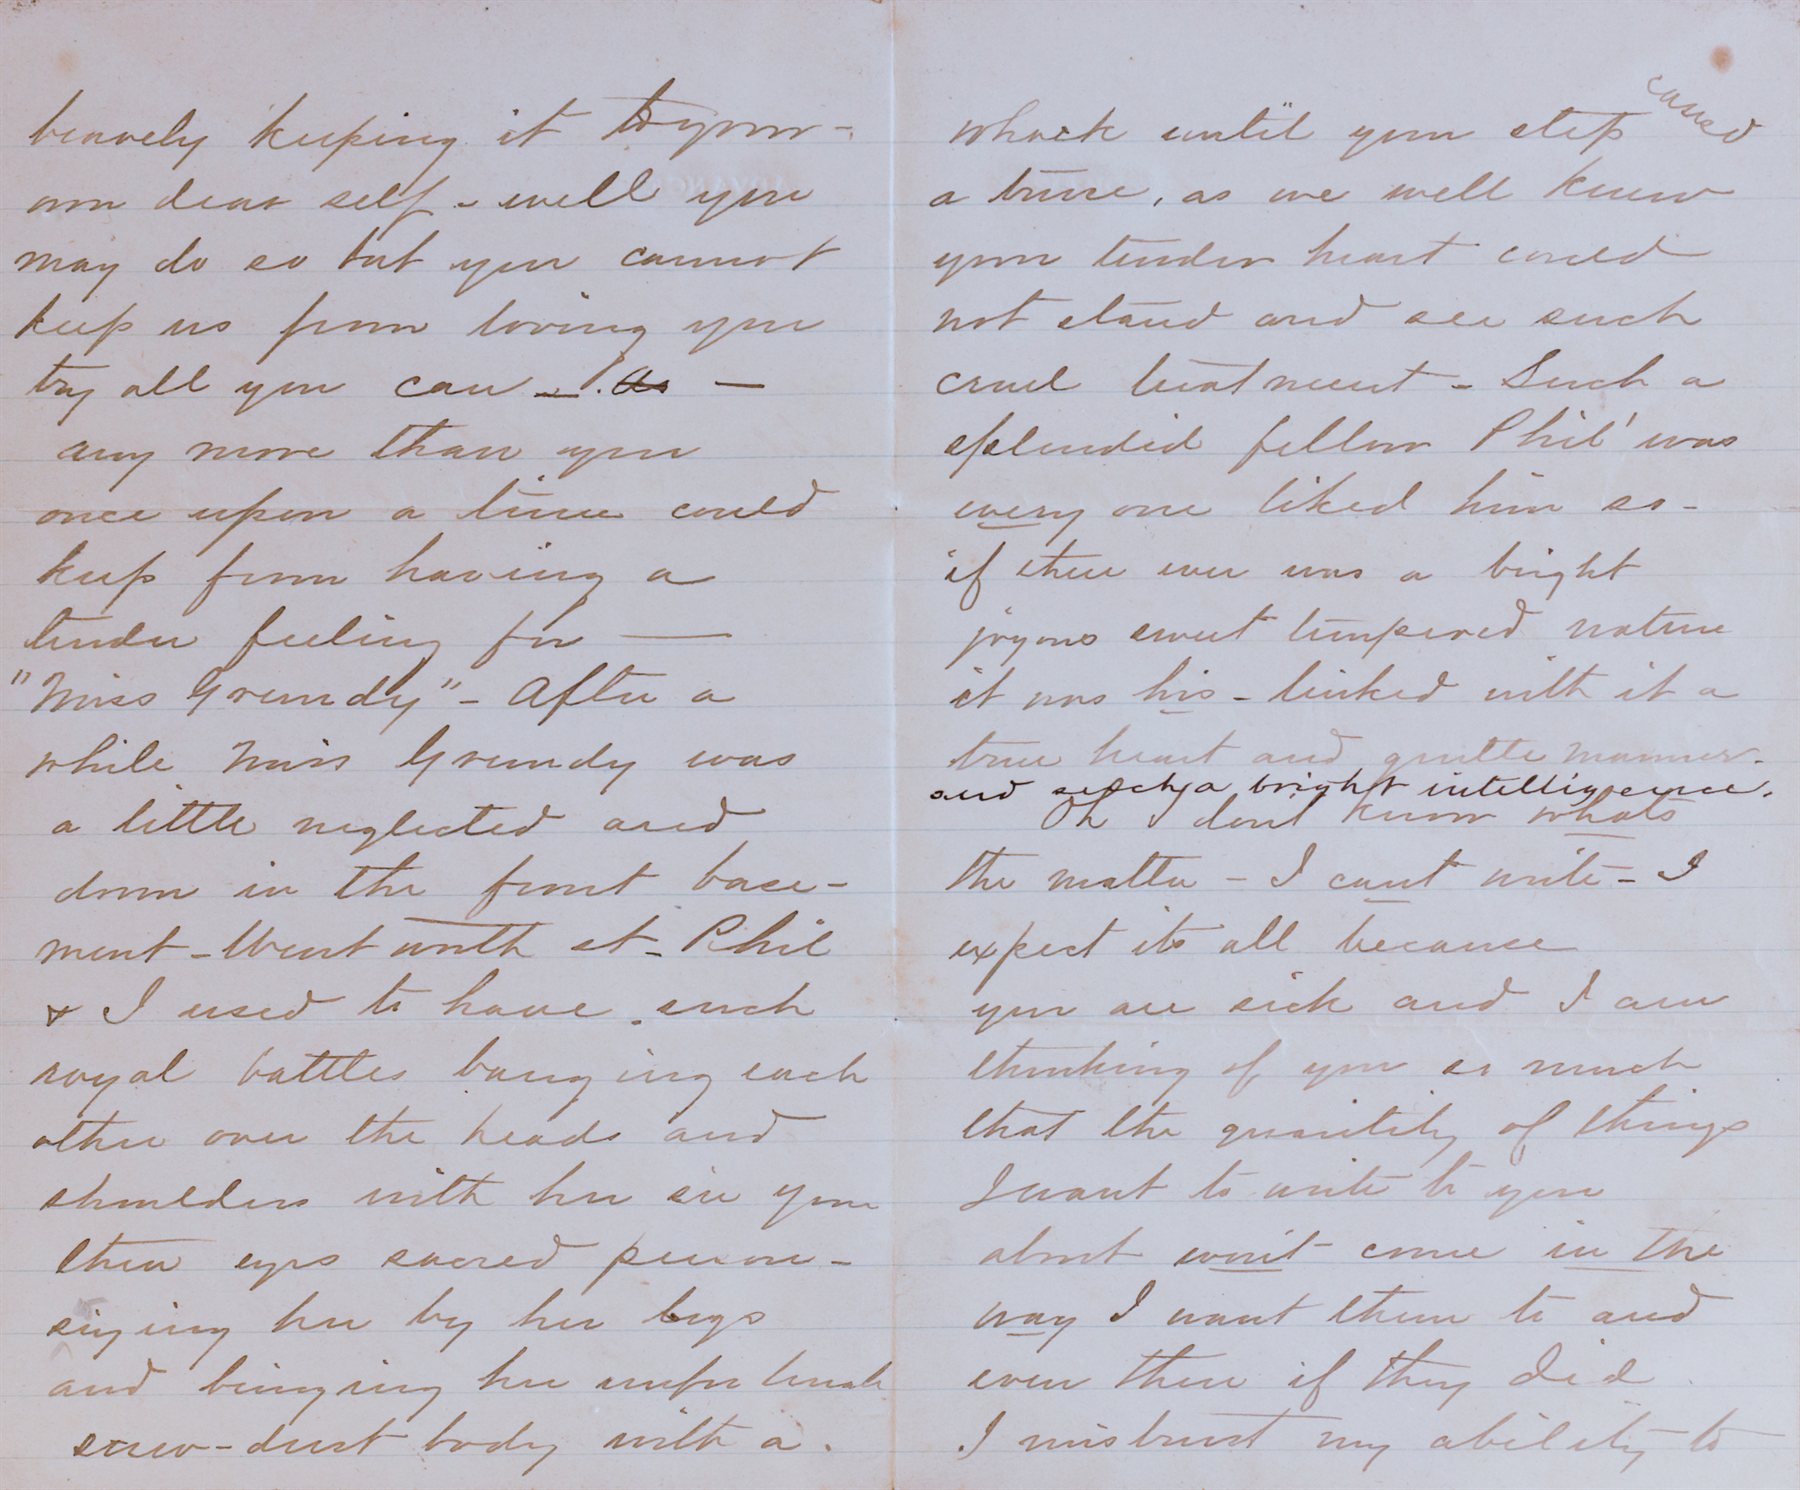 bravely keeping it to your-
own dear self - well you
may do so but you cannot
keep us from loving you
try all you can - as -
any more than you
once upon a time could
keep from having a
tender feeling for —
"Miss Grundy" - After a
while Miss Grundy was
a little neglected and
down in the front base-
ment - Went with it - Phil
& I used to have such
royal battles banging each
other over the heads and
shoulders with her in your
then eyes sacred person -
siezing her by her legs
and bringing her unfortunate
saw-dust body with a
whack until your step caused
a truce, as we well knew
your tender heart could
not stand and see such
cruel treatment - Such a
splendid fellow Phil' was
every one liked him so -
if there ever was a bright
joyous sweet tempered nature
it was his - linked with it a
true heart and gentle manner -
and such a bright intelligence.
Oh I dont know whats
the matter - I cant write - I
expect its all because
you are sick and I am
thinking of you so much
that the quantity of things
I want to write to you
about won't come in the
way I want them to and
even then if they did
I mistrust my ability to